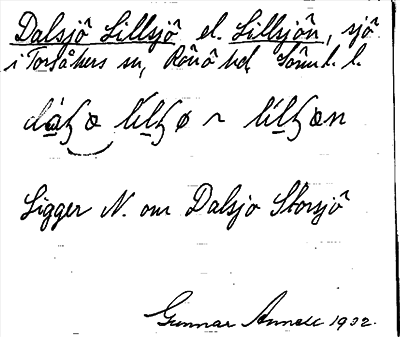 Dalsjö Lillsjö el. Lillsjön, sjö
i Torsåkers sn, Rönö hd, Söderm. l.
Ligger N. om Dalsjö Storsjö
Gunnar Annell 1932.